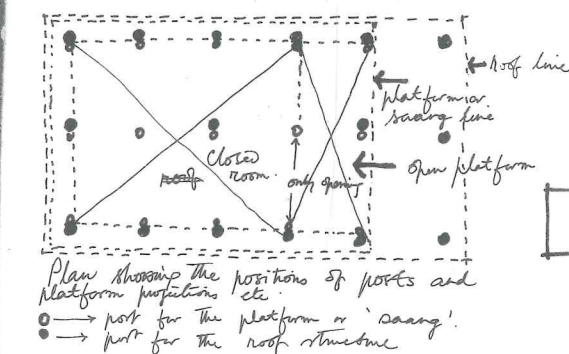 roof line
platform or
saang line
open platform
Closed
room.
only opening
Plan showing the positions of posts and
platform projections etc.
o → post for the platform or 'saang'.
● → post for the roof structure